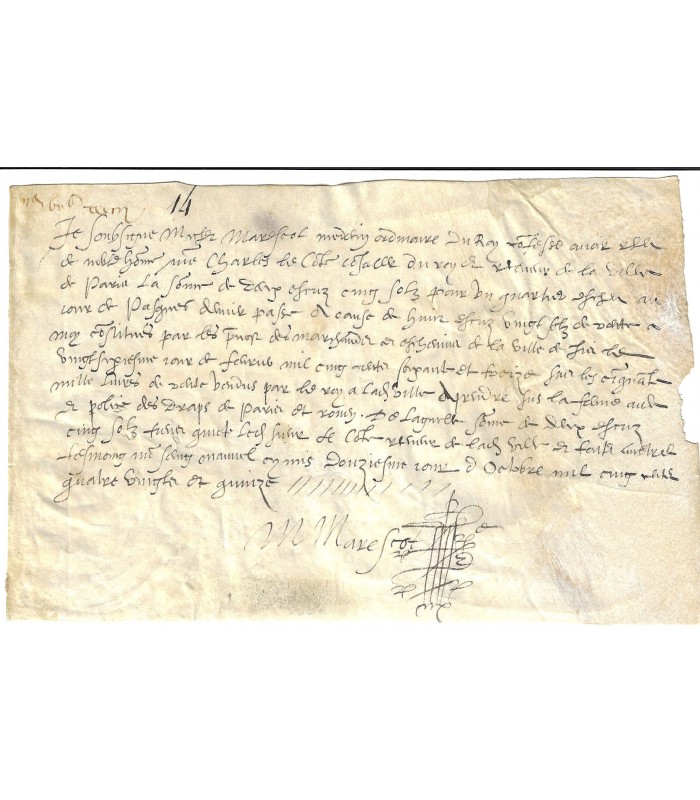 14
Je soubsigne Michel Marescot medecin ordinaire du Roy confesse avoir receu
de noble home me Charles le Conte coseiller du roy et receveur de la ville
de Paris la somme de deux escuz cinq solz pour un quartier escheu au
iour de Pasques dernier passe a cause de huit escuz vingt solz de rente a
moy constitues par les prevost des marchandz et eschevins de la ville de Paris le
vingtsixiesme iour de fevrier mil cinq centz soixante et treize sur les cinquante
mille livres de rente vendus par le roy a lad ville a prendre sus la ferme
et police des draps de Paris et Rouen. De laquelle some de deux escuz
cinq solz tz quicte led sieur le Conte receveur de lad ville et tous autres
tesmoing mon seing manuel cy mis douziesme iour d Octobre mil cinq centz
quatre vingtz et quinze
M Marescot